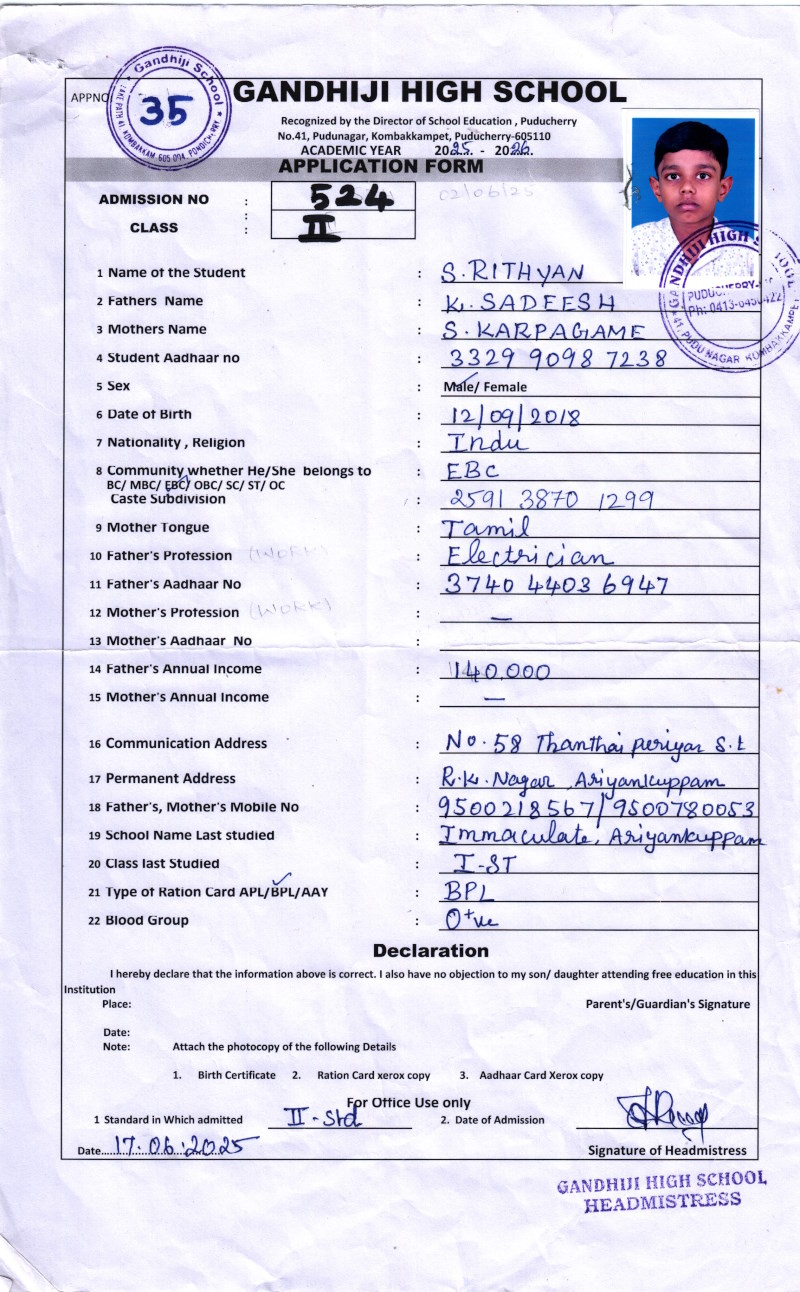 APPNO
Gandhiji School
35
KOMBAKKAM, 605 004, PONDICHERRY
GANDHIJI HIGH SCHOOL
Recognized by the Director of School Education , Puducherry
No.41, Pudunagar, Kombakkampet, Puducherry-605110
ACADEMIC YEAR 2025. - 2026.
APPLICATION FORM
ADMISSION NO : 524 02/06/25
CLASS : II
GANDHIJI HIGH SCHOOL
PUDUCHERRY
41, PUDU NAGAR KOMBAKKAMPET
1 Name of the Student : S. RITHYAN
2 Fathers Name : K. SADEESH
3 Mothers Name : S. KARPAGAME
4 Student Aadhaar no : 3329 9098 7238
5 Sex : Male/ Female
6 Date of Birth : 12/09/2018
7 Nationality , Religion : Indu
8 Community whether He/She belongs to : EBC
BC/ MBC/ EBC/ OBC/ SC/ ST/ OC
Caste Subdivision : 2591 3870 1299
9 Mother Tongue : Tamil
10 Father's Profession (WORK) : Electrician
11 Father's Aadhaar No : 3740 4403 6947
12 Mother's Profession (WORK) : —
13 Mother's Aadhaar No :
14 Father's Annual Income : 140,000
15 Mother's Annual Income : —
16 Communication Address : No. 58 Thanthai periyar S.t
17 Permanent Address : R.K. Nagar, Ariyankuppam
18 Father's, Mother's Mobile No : 9500218567/9500780053
19 School Name Last studied : Immaculate, Ariyankuppam
20 Class last Studied : I-ST
21 Type of Ration Card APL/BPL/AAY : BPL
22 Blood Group : O+ve
Declaration
I hereby declare that the information above is correct. I also have no objection to my son/ daughter attending free education in this
Institution
Place: Parent's/Guardian's Signature
Date:
Note: Attach the photocopy of the following Details
1. Birth Certificate 2. Ration Card xerox copy 3. Aadhaar Card Xerox copy
For Office Use only
1 Standard in Which admitted II-Std 2. Date of Admission
Date....17.06.2025 Signature of Headmistress
GANDHIJI HIGH SCHOOL
HEADMISTRESS